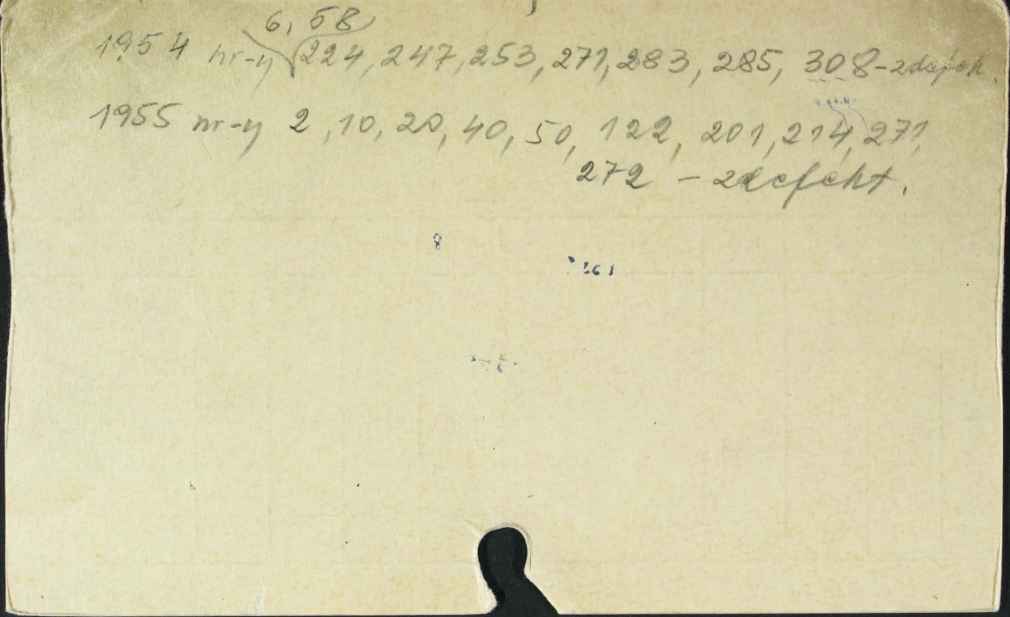 6, 58
1954 nr-y 224, 247, 253, 271, 283, 285, 308 - zdefek.
1955 nr-y 2, 10, 20, 40, 50, 122, 201, 214, 271,
272 - zdefekt.